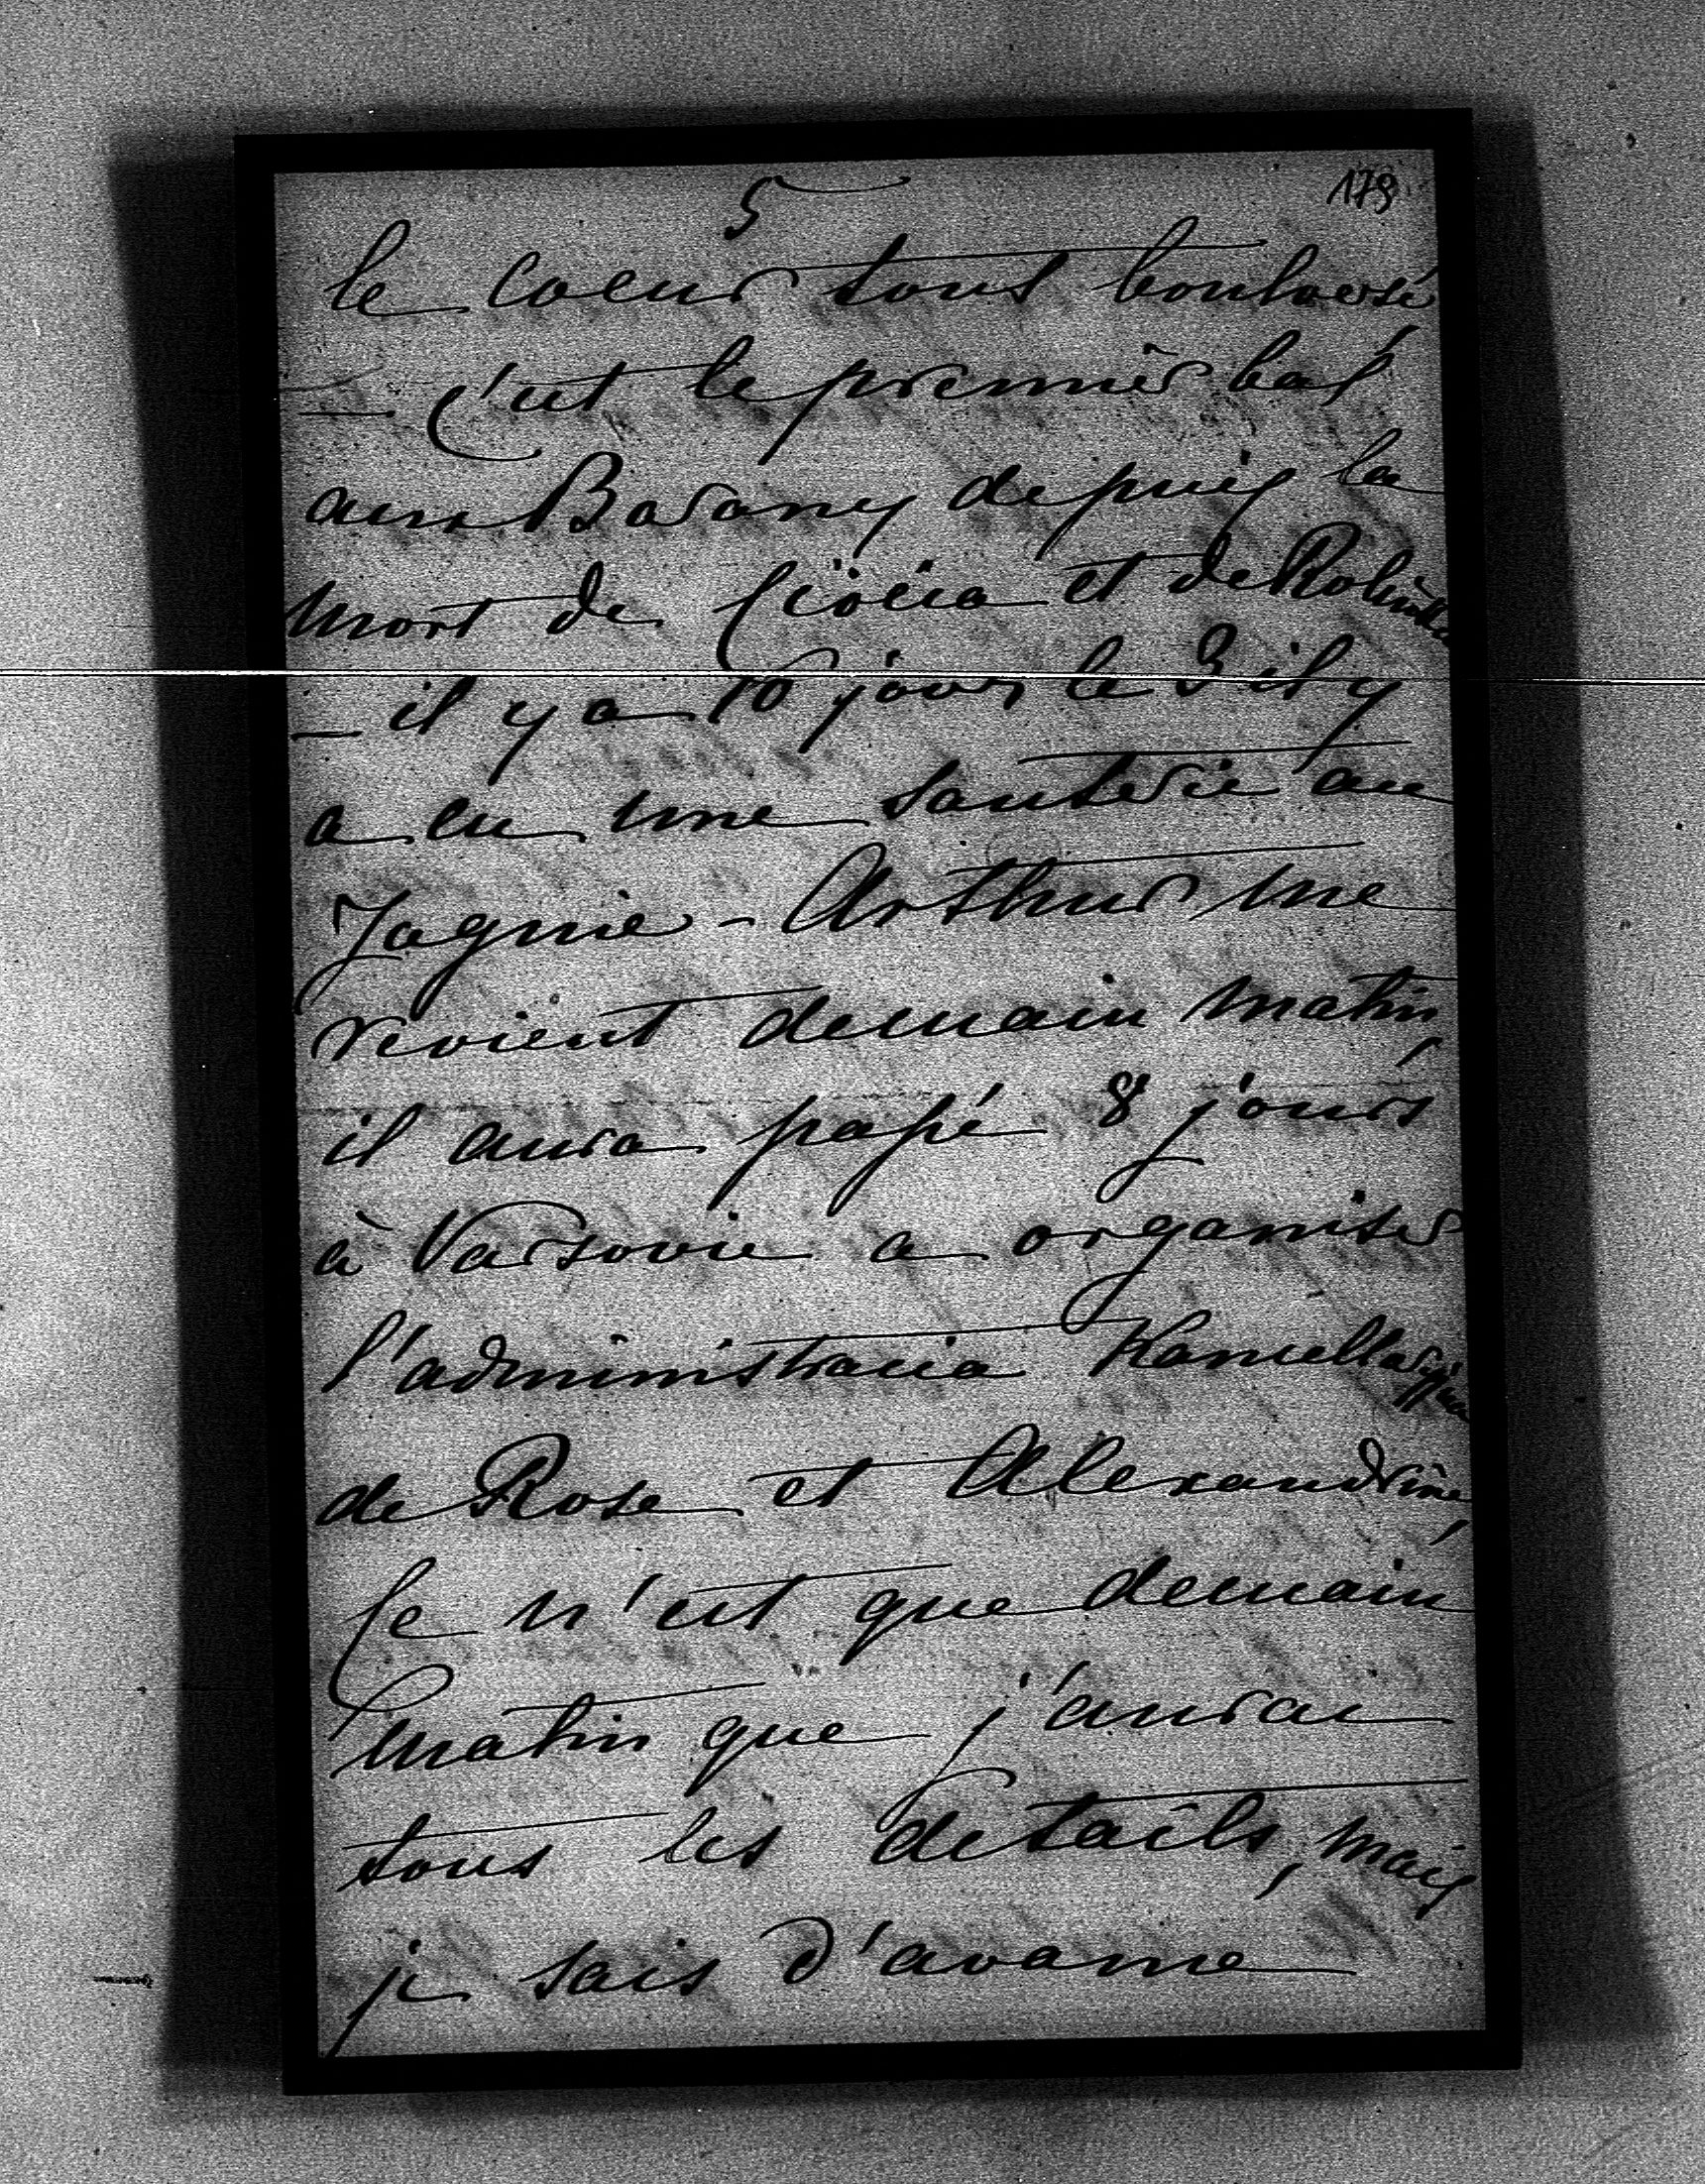 5
179
le coeur tout boulversé
— c'est le premier bal
aux Barany depuis la
mort de Ciocia et de
— il y a 10 jours le 3 il y
a eu une sauterie au
Jagnie - Arthur me
revient demain matin,
il aura passé 8 jours
à Varsovie a organiser
l'administracia
de Rose et Alexandrine,
Ce n'est que demain
matin que j'aurai
tous les détails, mais
je sais d'avance